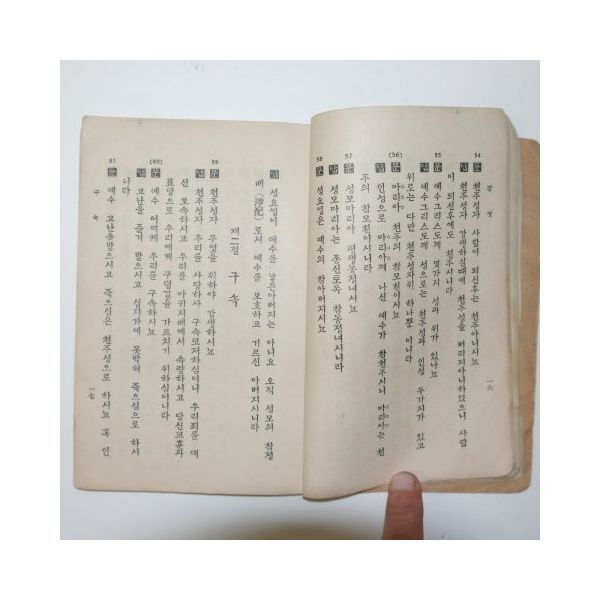 강생
一六
54
문 천주성자 사람이 되신후는 천주아니시뇨
답 천주성자 강생하실때에 천주성을 버리지아니하셨으니 사람
이 되신후에도 천주시니라
55
문 예수그리스도께 몇가지 성과 위가 있나뇨
답 예수그리스도께 성으로는 천주성과 인성 두가지가 있고
위로는 다만 천주성자위 하나뿐이니라
(56)
문 마리아 천주의 참모친이시뇨
답 인성으로 마리아께 나신 예수가 참천주시니 마리아는 천
주의 참모친이시니라
57
문 성모마리아 평생동정녀시뇨
답 성모마리아는 종신토록 참동정녀시니라
58
문 성요셉은 예수의 참아버지시뇨
답 성요셉이 예수를 낳은아버지는 아니요 오직 성모의 참정
배(淨配)로서 예수를 보호하고 기르신 아버지시니라
제二절 구속
59
문 천주성자 무엇을 위하야 강생하시뇨
답 천주성자 우리를 사랑하사 구속코저하심이니 우리죄를 대
신 보속하시고 우리를 마귀지배에서 속량하시고 당신교훈과
표양으로 우리에게 구령길을 가르치기 위하심이니라
(60)
문 예수 어떠케 우리를 구속하시뇨
답 고난을 즐겨 받으시고 십자가에 못박혀 죽으심으로 하시
니라
61
문 예수 고난을받으시고 죽으심은 천주성으로 하시뇨 혹 인
구속
一七